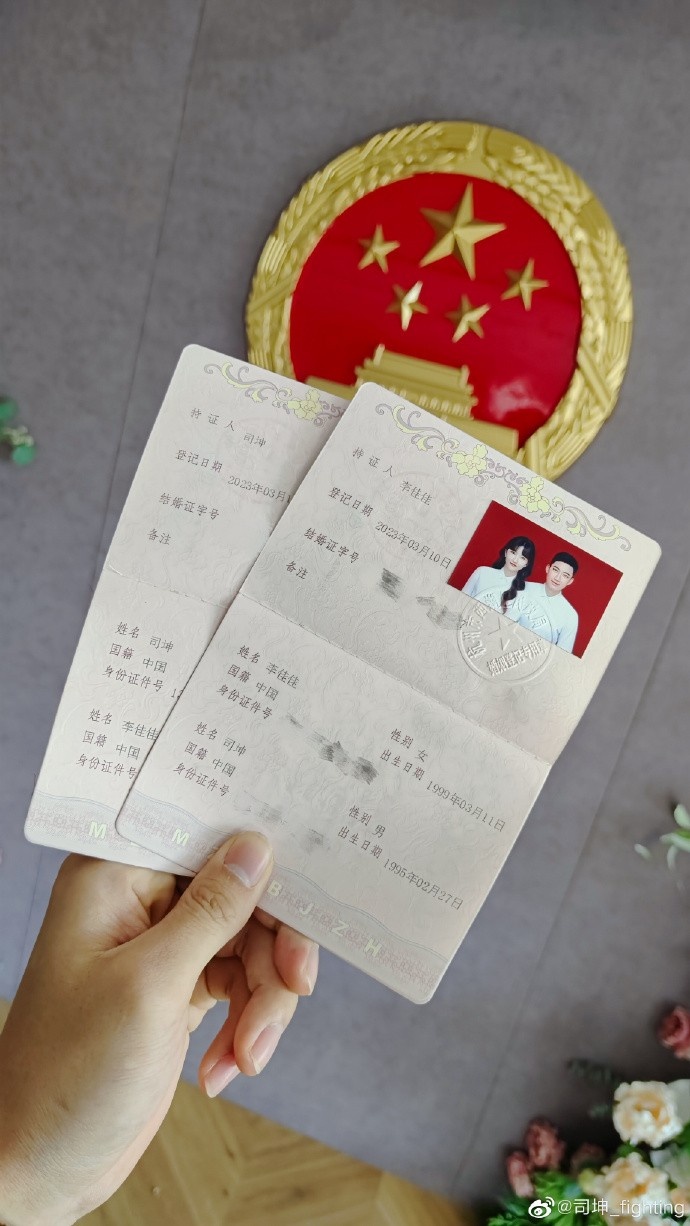 持证人 司坤
登记日期 2023年03月1
结婚证字号
备注
姓名 司坤
国籍 中国
身份证件号 1
姓名 李佳佳
国籍 中国
身份证件号
M
持证人 李佳佳
登记日期 2023年03月10日
结婚证字号
备注
姓名 李佳佳 性别 女
国籍 中国 出生日期 1993年03月11日
身份证件号
姓名 司坤 性别 男
国籍 中国 出生日期 1995年02月27日
身份证件号
M B J Z H
@司坤_fighting